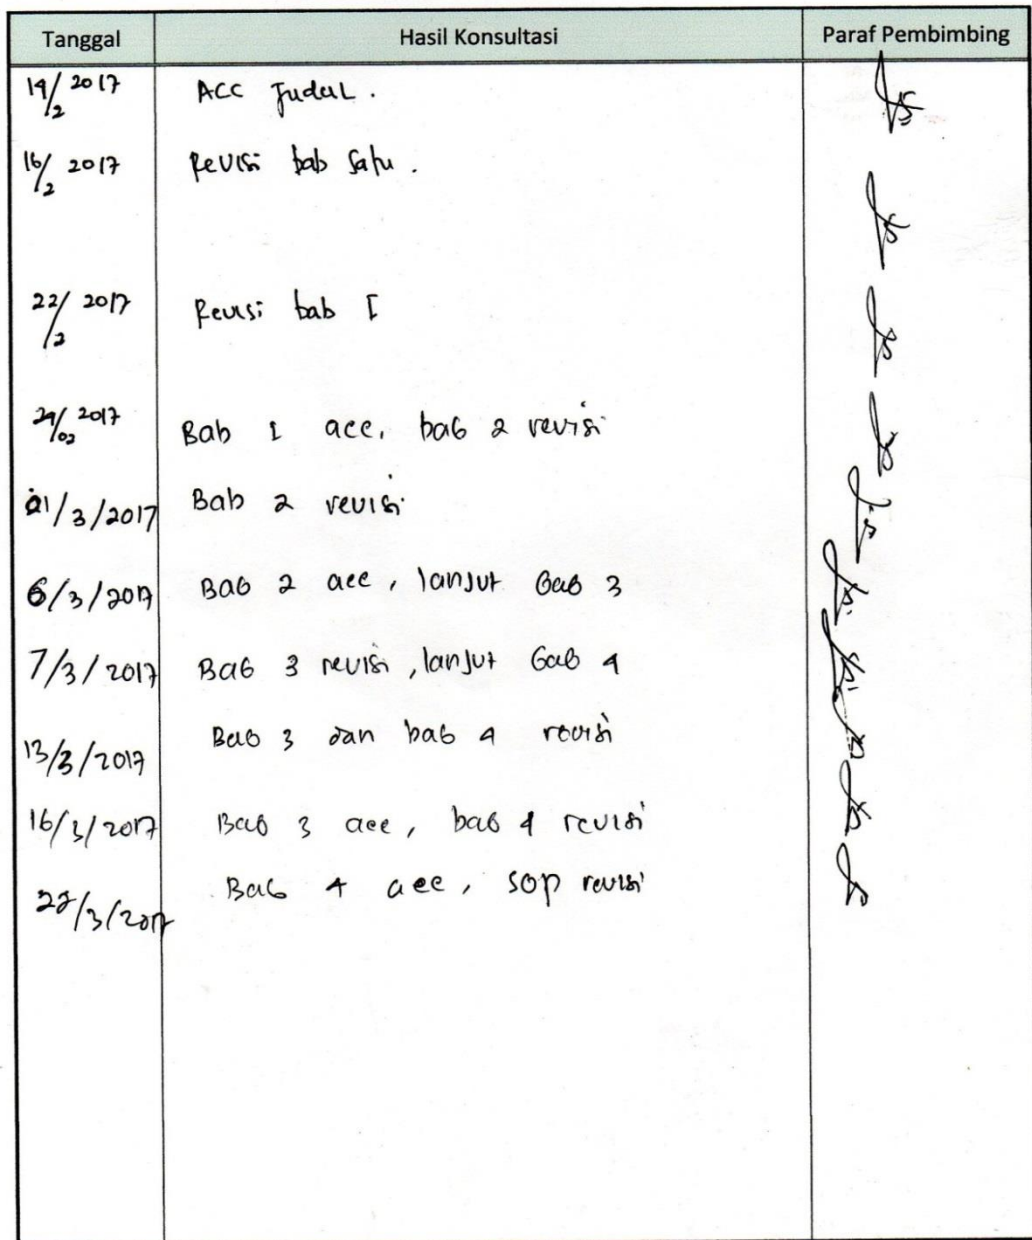 Tanggal Hasil Konsultasi Paraf Pembimbing
14/2 2017 ACC Judul.
16/2 2017 Revisi bab satu.
22/2 2017 Revisi bab I
2017 Bab 1 acc, bab 2 revisi
01/3/2017 Bab 2 revisi
6/3/2017 Bab 2 acc, lanjut bab 3
7/3/2017 Bab 3 revisi, lanjut bab 4
13/3/2017 Bab 3 dan bab 4 revisi
16/3/2017 Bab 3 acc, bab 4 revisi
/3/2017 Bab 4 acc, SOP revisi